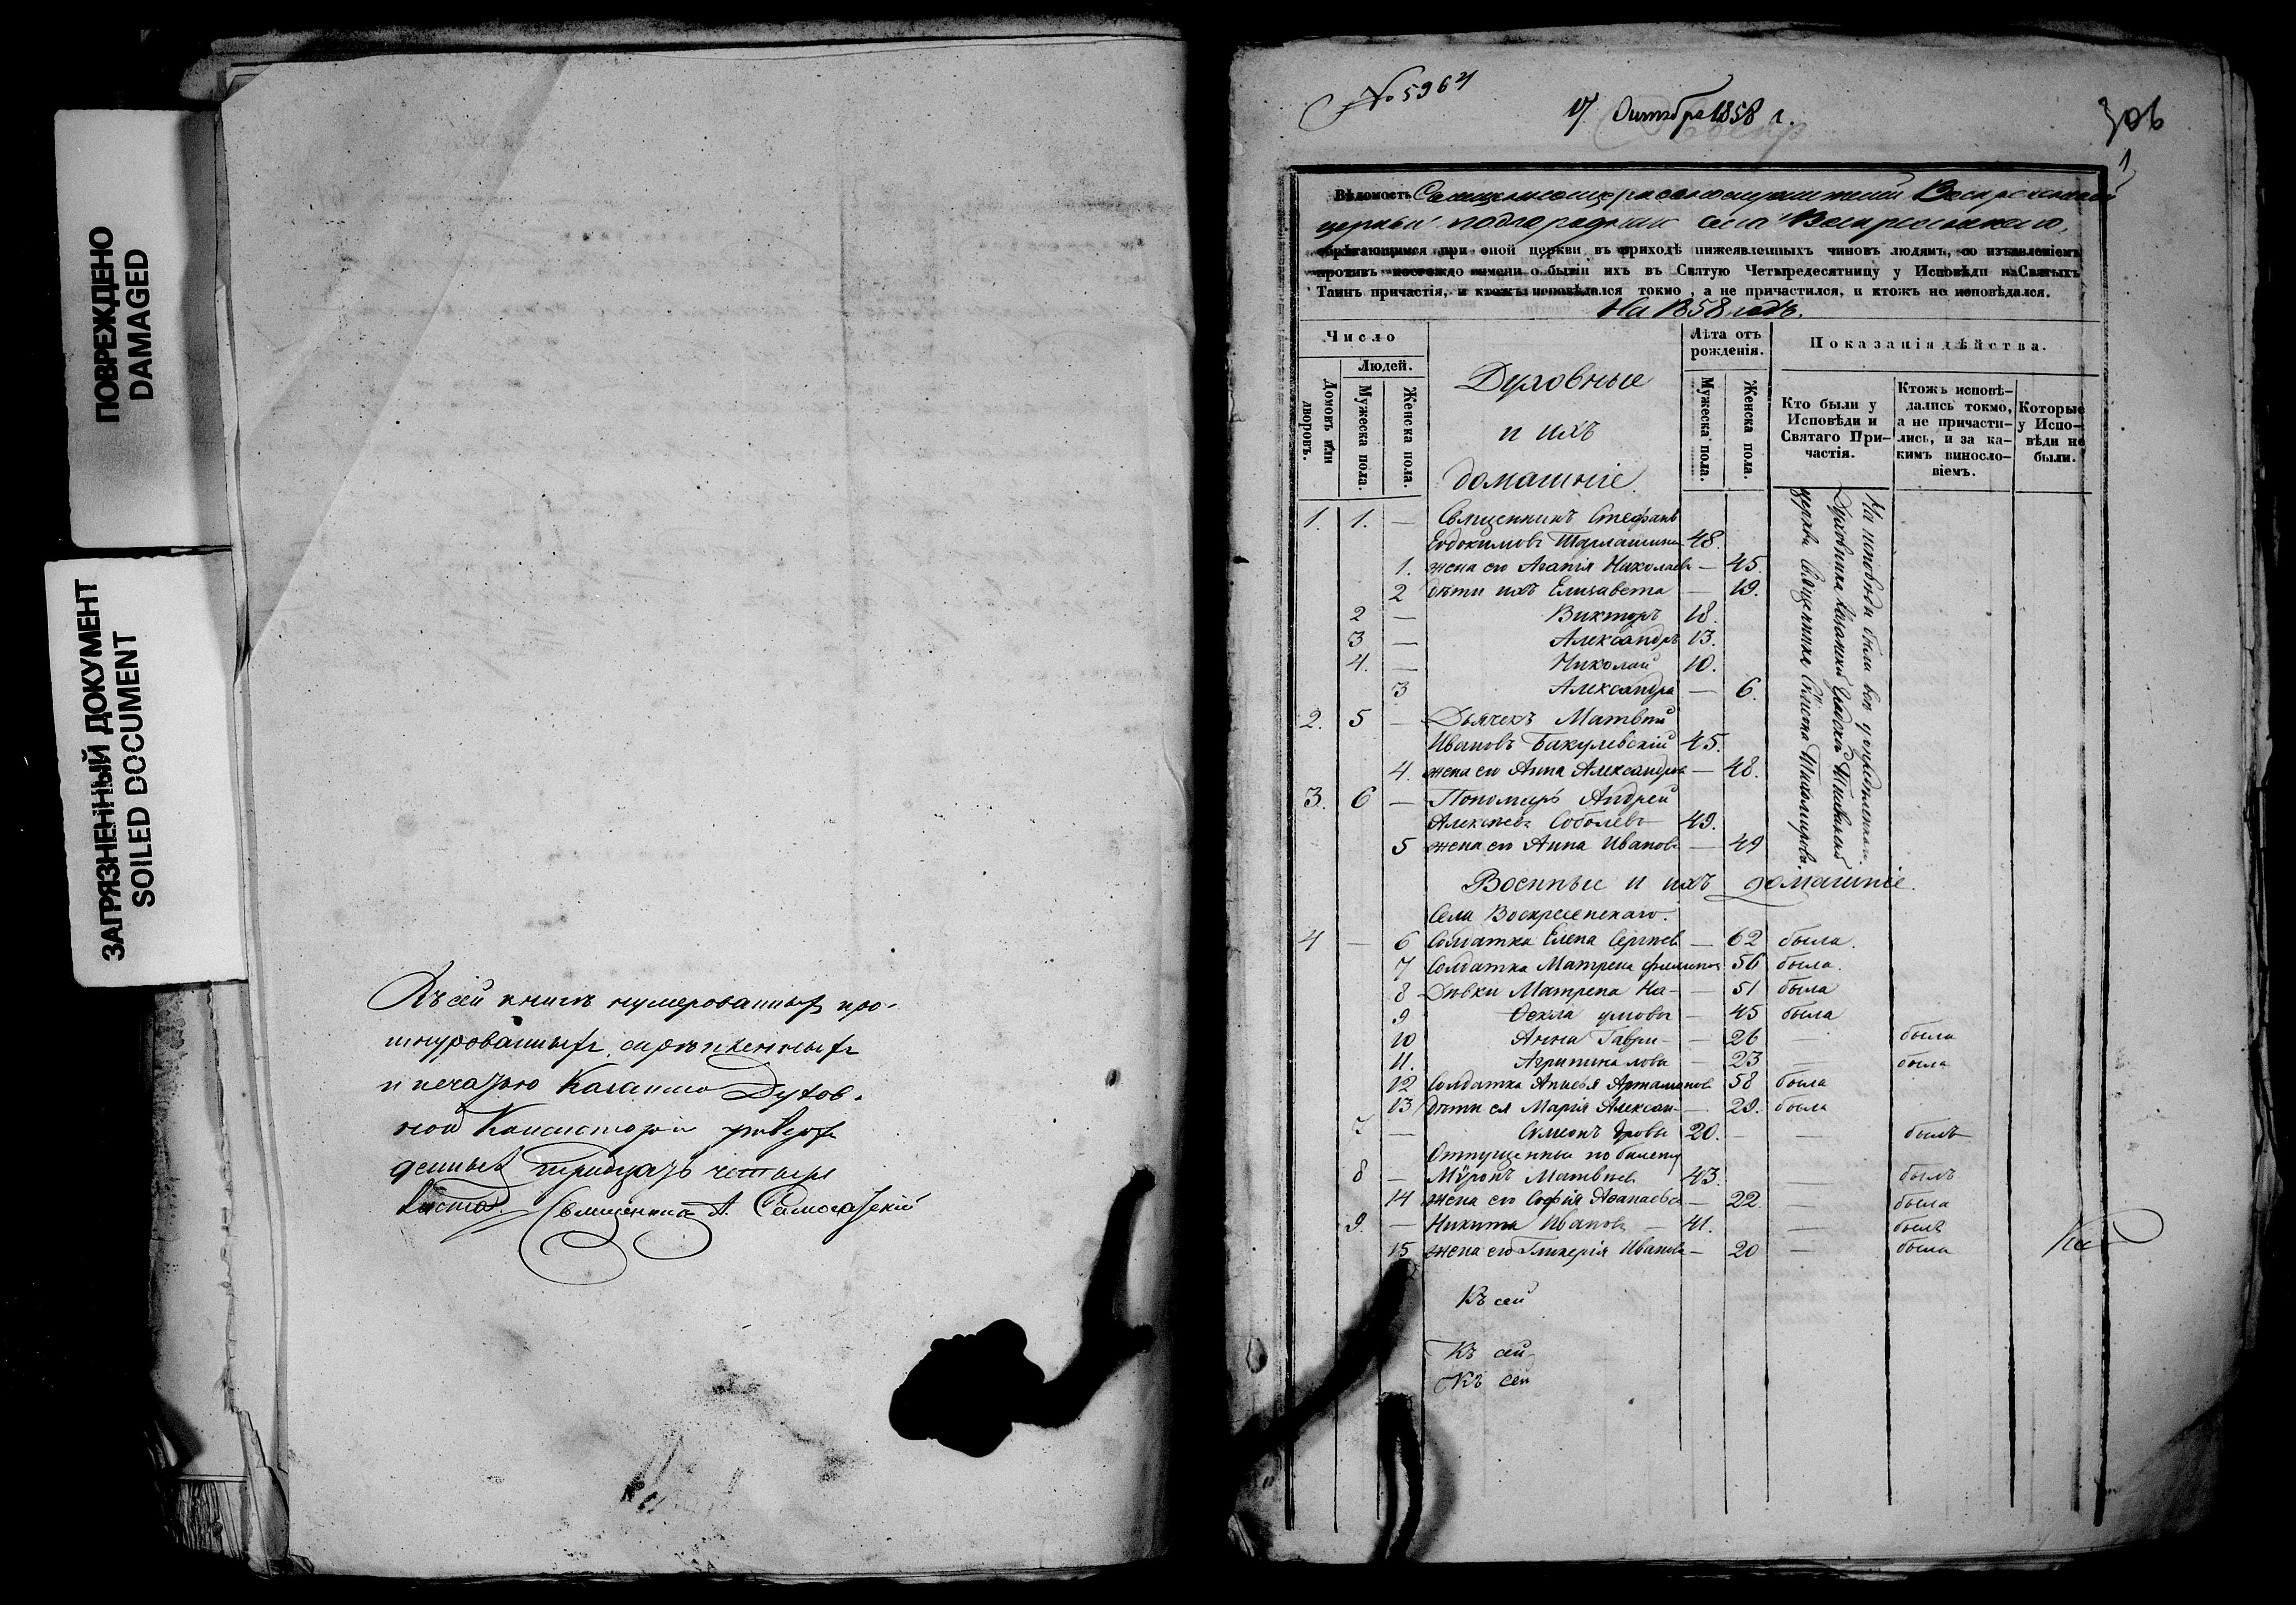 ПОВРЕЖДЕНО
DAMAGED
ЗАГРЯЗНЕННЫЙ ДОКУМЕНТ
SOILED DOCUMENT
Въ сей книгѣ нумерованныхъ про-
шнурованныхъ, скрѣпленныхъ
и печатью Казанской Духов-
ной Консисторіи утверж-
денныхъ тридцать четыре
листа. Священникъ А.
№ 5964
17 Октября 1858 г.
306
1
Вѣдомость Воскресенской
церкви села Воскресенскаго,
обрѣтающимся при оной церкви въ приходѣ нижеявленныхъ чиновъ людямъ, со изъявленіемъ
противъ коегождо имени о бытіи ихъ въ Святую Четыредесятницу у Исповѣди и Святыхъ
Таинъ причастія, и ктожъ исповѣдался токмо, а не причастился, и ктожъ не исповѣдался.
На 1858 годъ.
Число
Лѣта отъ рожденія.
Показанія дѣйства.
Людей.
Домовъ или дворовъ.
Мужеска пола.
Женска пола.
Духовные
и ихъ
домашніе.
Мужеска пола.
Женска пола.
Кто были у Исповѣди и Святаго При-частія.
Ктожъ исповѣ-дались токмо, а не причасти-лись, и за ка-кимъ виносло-віемъ.
Которые у Испо-вѣди не были.
1. 1. — Священникъ Стефанъ
Евдокимовъ 48.
1. жена его Агапія Николаев — 45.
2 дѣти ихъ Елизавета — 19.
2 — Викторъ 18.
3 — Александръ 13.
4. — Николай 10.
3 Александра — 6.
На исповѣди были
Духовника
церкви Священника Тихомирова.
2. 5 — Дьячекъ Матвѣй
Ивановъ Бакулевскій 45.
4. жена его Анна Александров — 48.
3. 6 — Пономарь Андрей
Алексѣевъ Соболевъ 49.
5 жена его Анна Иванов — 49
Военные и ихъ домашніе.
Села Воскресенскаго.
4 — 6 Солдатка Елена Сергѣев — 62 была.
7 Солдатка Матрена Филипов 56 была.
8 Дѣвки Матрена На- — 51 была
9 Ѳекла умовы — 45 была
10 Анна Гаври- — 26 — была
11. Агрипина ловы — 23 — была
12 Солдатка Анисья Артамонов 58 была
13 дѣти ея Марія Алексан- — 29. была
7 — Симеонъ дровы 20. — — былъ
Отпущенные по билету
8 — Мѵронъ Матвѣев 43. — былъ
14 жена его Софія — 22. — была
9. — Никита Иванов — 41. — былъ
15 жена его Гликерія Иванова — 20 — была
Къ сей
Къ сей
Къ сей